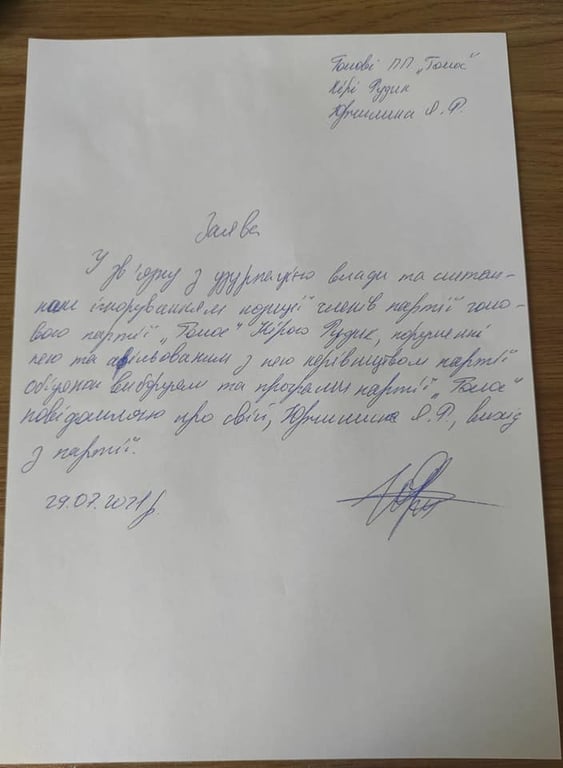 Голові ПП „Голос"
Кірі Рудик
Юрчишина Я. Р.
Заява
У зв'язку з узурпацією влади та
ігноруванням позиції членів партії голо-
вою партії „Голос" Кірою Рудик, порушенні
нею та афільованим з нею керівництвом партії
обіцянок виборцям та програми партії „Голос"
повідомляю про свій, Юрчишина Я. Р., вихід
з партії.
29.07.2021р.